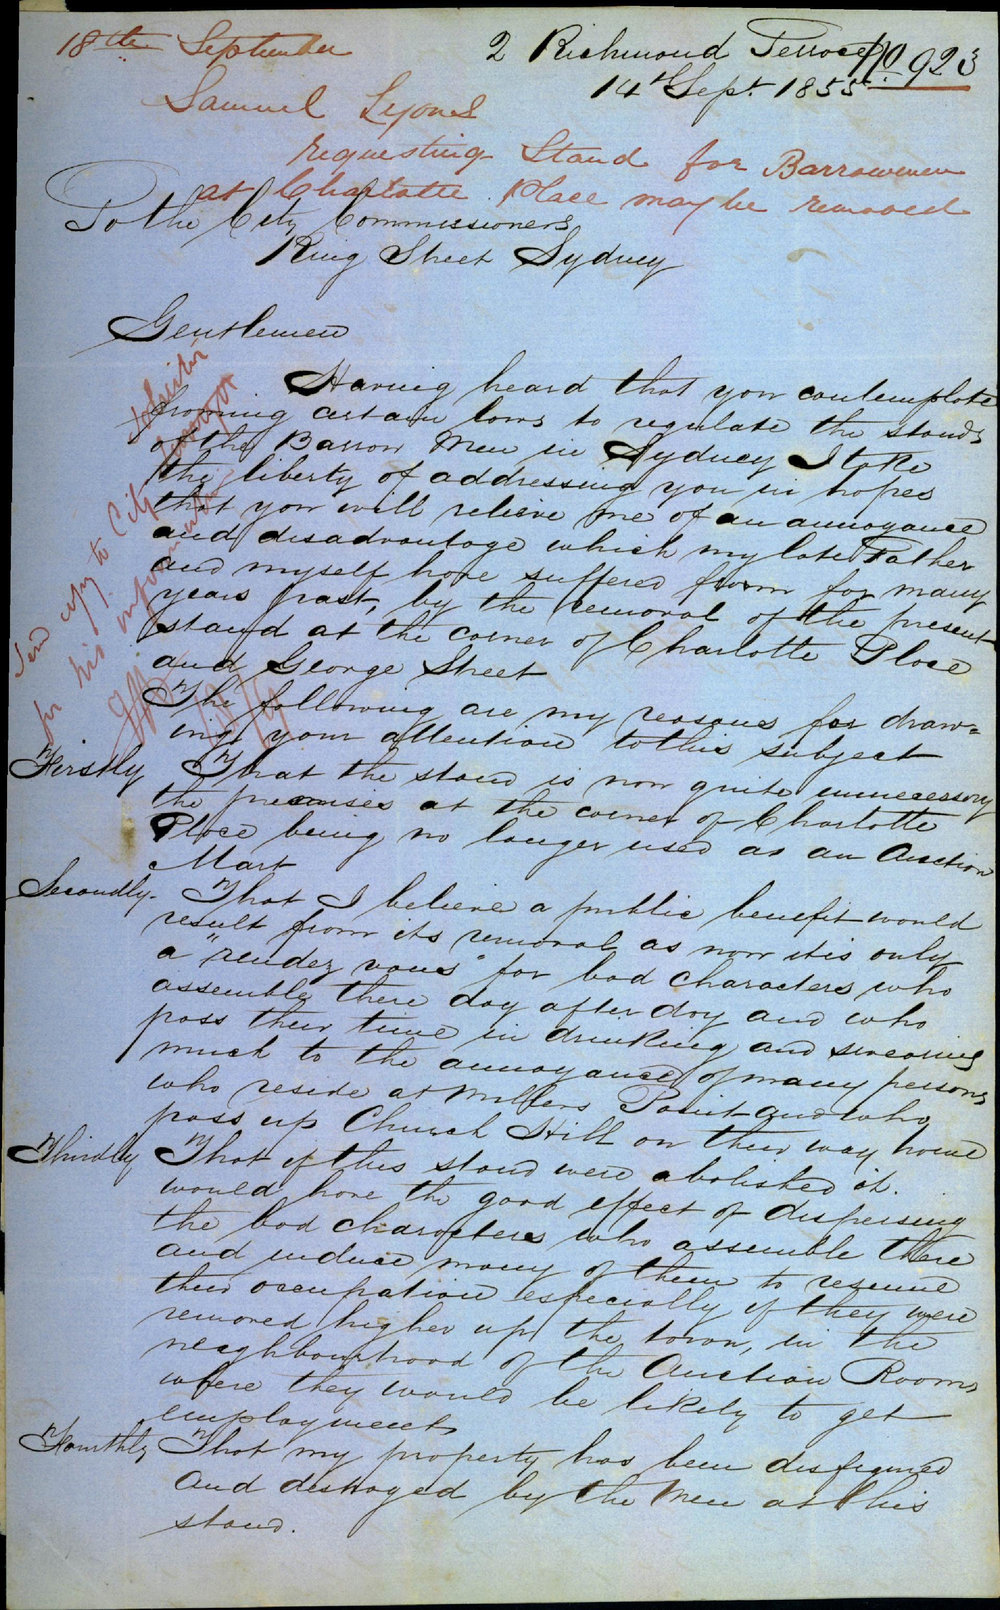 18th September
2 Richmond Terrace
No. 923
14th Sept. 1855
Samuel Lyons
requesting Stand for Barrowmen
at Charlotte Place may be removed
To the City Commissioners
King Street Sydney
Gentlemen
Having heard that you contemplate
framing certain laws to regulate the stands
of the Barrow Men in Sydney I take
the liberty of addressing you in hopes
that you will relieve me of an annoyance
and disadvantage which my late Father
and myself have suffered from for many
years past, by the removal of the present
stand at the corner of Charlotte Place
and George Street
The following are my reasons for draw=
ing your attention to this subject
Firstly That the stand is now quite unnecessary
the premises at the corner of Charlotte
Place being no longer used as an Auction
Mart
Secondly. That I believe a public benefit would
result from its removal as now it is only
a "rendez vous" for bad characters who
assemble there day after day and who
pass their time in drinking and swearing
much to the annoyance of many persons
who reside at Millers Point and who
pass up Church Hill on their way home
Thirdly That if this stand were abolished it
would have the good effect of dispersing
the bad characters who assemble there
and induce many of them to resume
their occupation especially if they were
removed higher up the town, in the
neighbourhood of the Auction Rooms
where they would be likely to get
employment
Fourthly That my property has been disfigured
and destroyed by the Men at this
stand.
Send copy to City Solicitor
for his information